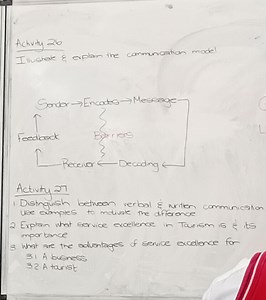 Activity 26
Illustrate & explain the communication model
Sender → Encodes → Message
Feedback
Barriers
Receiver ← Decoding
Activity 27
1 Distinguish between verbal & written communication
use examples to motivate the difference
2 Explain what service excellence in Tourism is & its
importance
3 What are the advantages of service excellence for
3.1 A business
3.2 A tourist